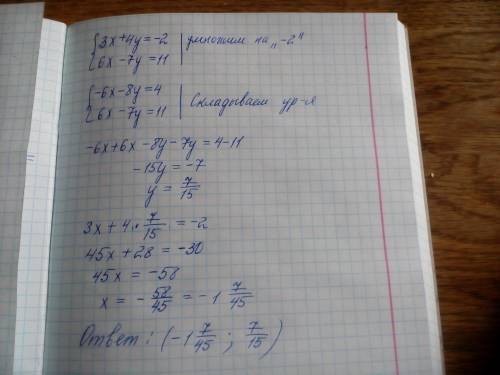 {3x+4y=-2 | умножим на „-2"
{6x-7y=11
{-6x-8y=4 | Складываем ур-я
{6x-7y=11
-6x+6x-8y-7y=4-11
-15y=-7
y=7/15
3x+4·7/15=-2
45x+28=-30
45x=-58
x=-58/45=-1 7/45
Ответ: (-1 7/45; 7/15)